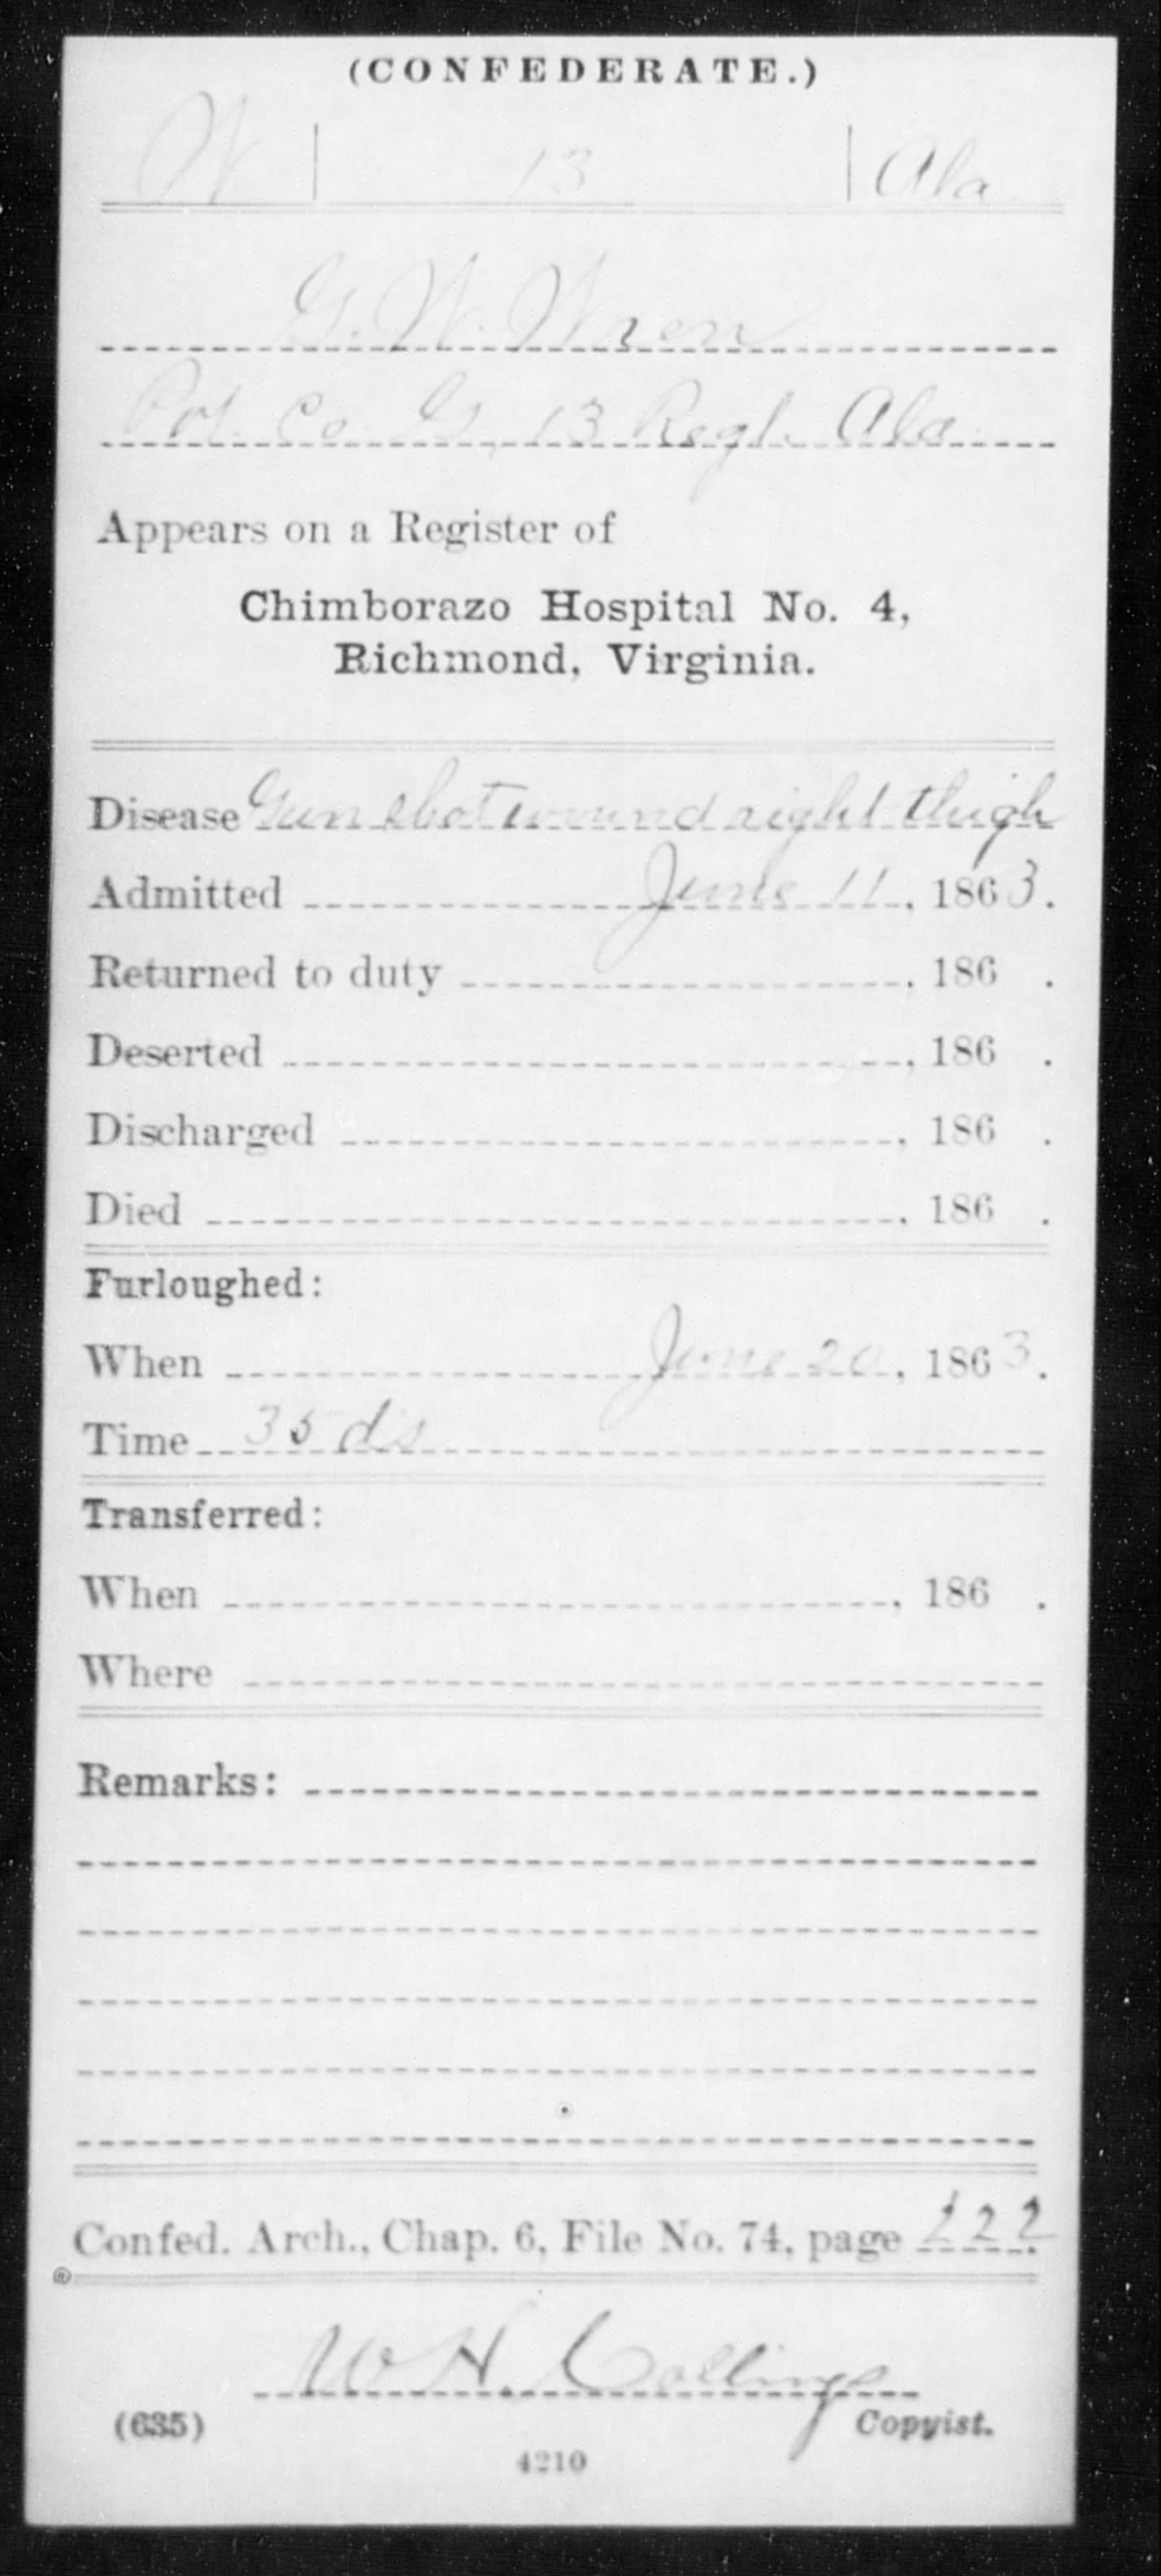 (CONFEDERATE.)
W | 13 | Ala
G. W. Wren
Pvt. Co. G, 13 Regt. Ala.
Appears on a Register of
Chimborazo Hospital No. 4,
Richmond, Virginia.
Disease Gun shot wound right thigh
Admitted June 11, 1863.
Returned to duty , 186 .
Deserted , 186 .
Discharged , 186 .
Died , 186 .
Furloughed:
When June 20, 1863.
Time 35 ds
Transferred:
When , 186 .
Where
Remarks:
Confed. Arch., Chap. 6, File No. 74, page 222
W. H. Collings
(635) Copyist.
4210